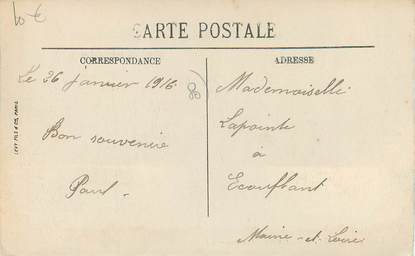 10 €
CARTE POSTALE
CORRESPONDANCE
ADRESSE
Le 26 janvier 1916
Bon souvenir
Paul.
80
Mademoiselle
Lapointe
à
Ecouflant
Maine-et-Loire
LEVY FILS & Cie, PARIS